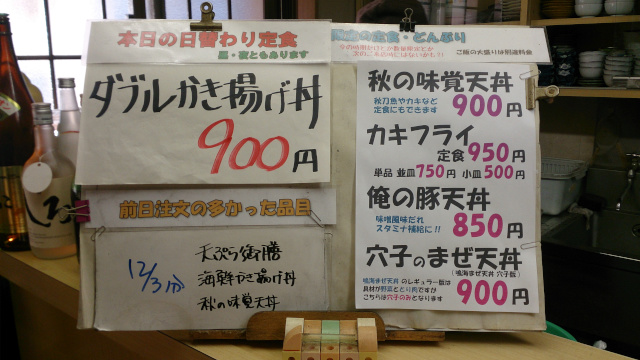 本日の日替わり定食
昼・夜ともあります
ダブルかき揚げ丼
900円
前日注文の多かった品目
12/3分
天ぷら御膳
海鮮かき揚げ丼
秋の味覚天丼
の定食・どんぶり
ご飯の大盛りは別途料金
秋の味覚天丼
秋刀魚やカキなど
定食にもできます
900円
カキフライ
定食950円
単品 並皿750円 小皿500円
俺の豚天丼
味噌風味だれ
スタミナ補給に!!
850円
穴子のまぜ天丼
(鳴海まぜ天丼 穴子飯)
鳴海まぜ天丼 のレギュラー版は
具材が野菜ととり肉ですが
こちらは穴子のみとなります
900円